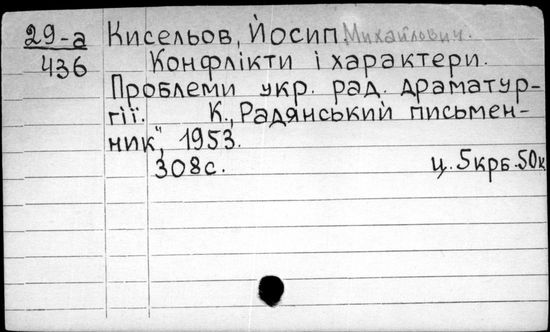 29-а Кисельов, Йосип Михайлович.
436 Конфлікти і характери.
Проблеми укр. рад. драматур-
гії. К., „Радянський письмен-
ник", 1953.
308с. ц. 5крб. 50к